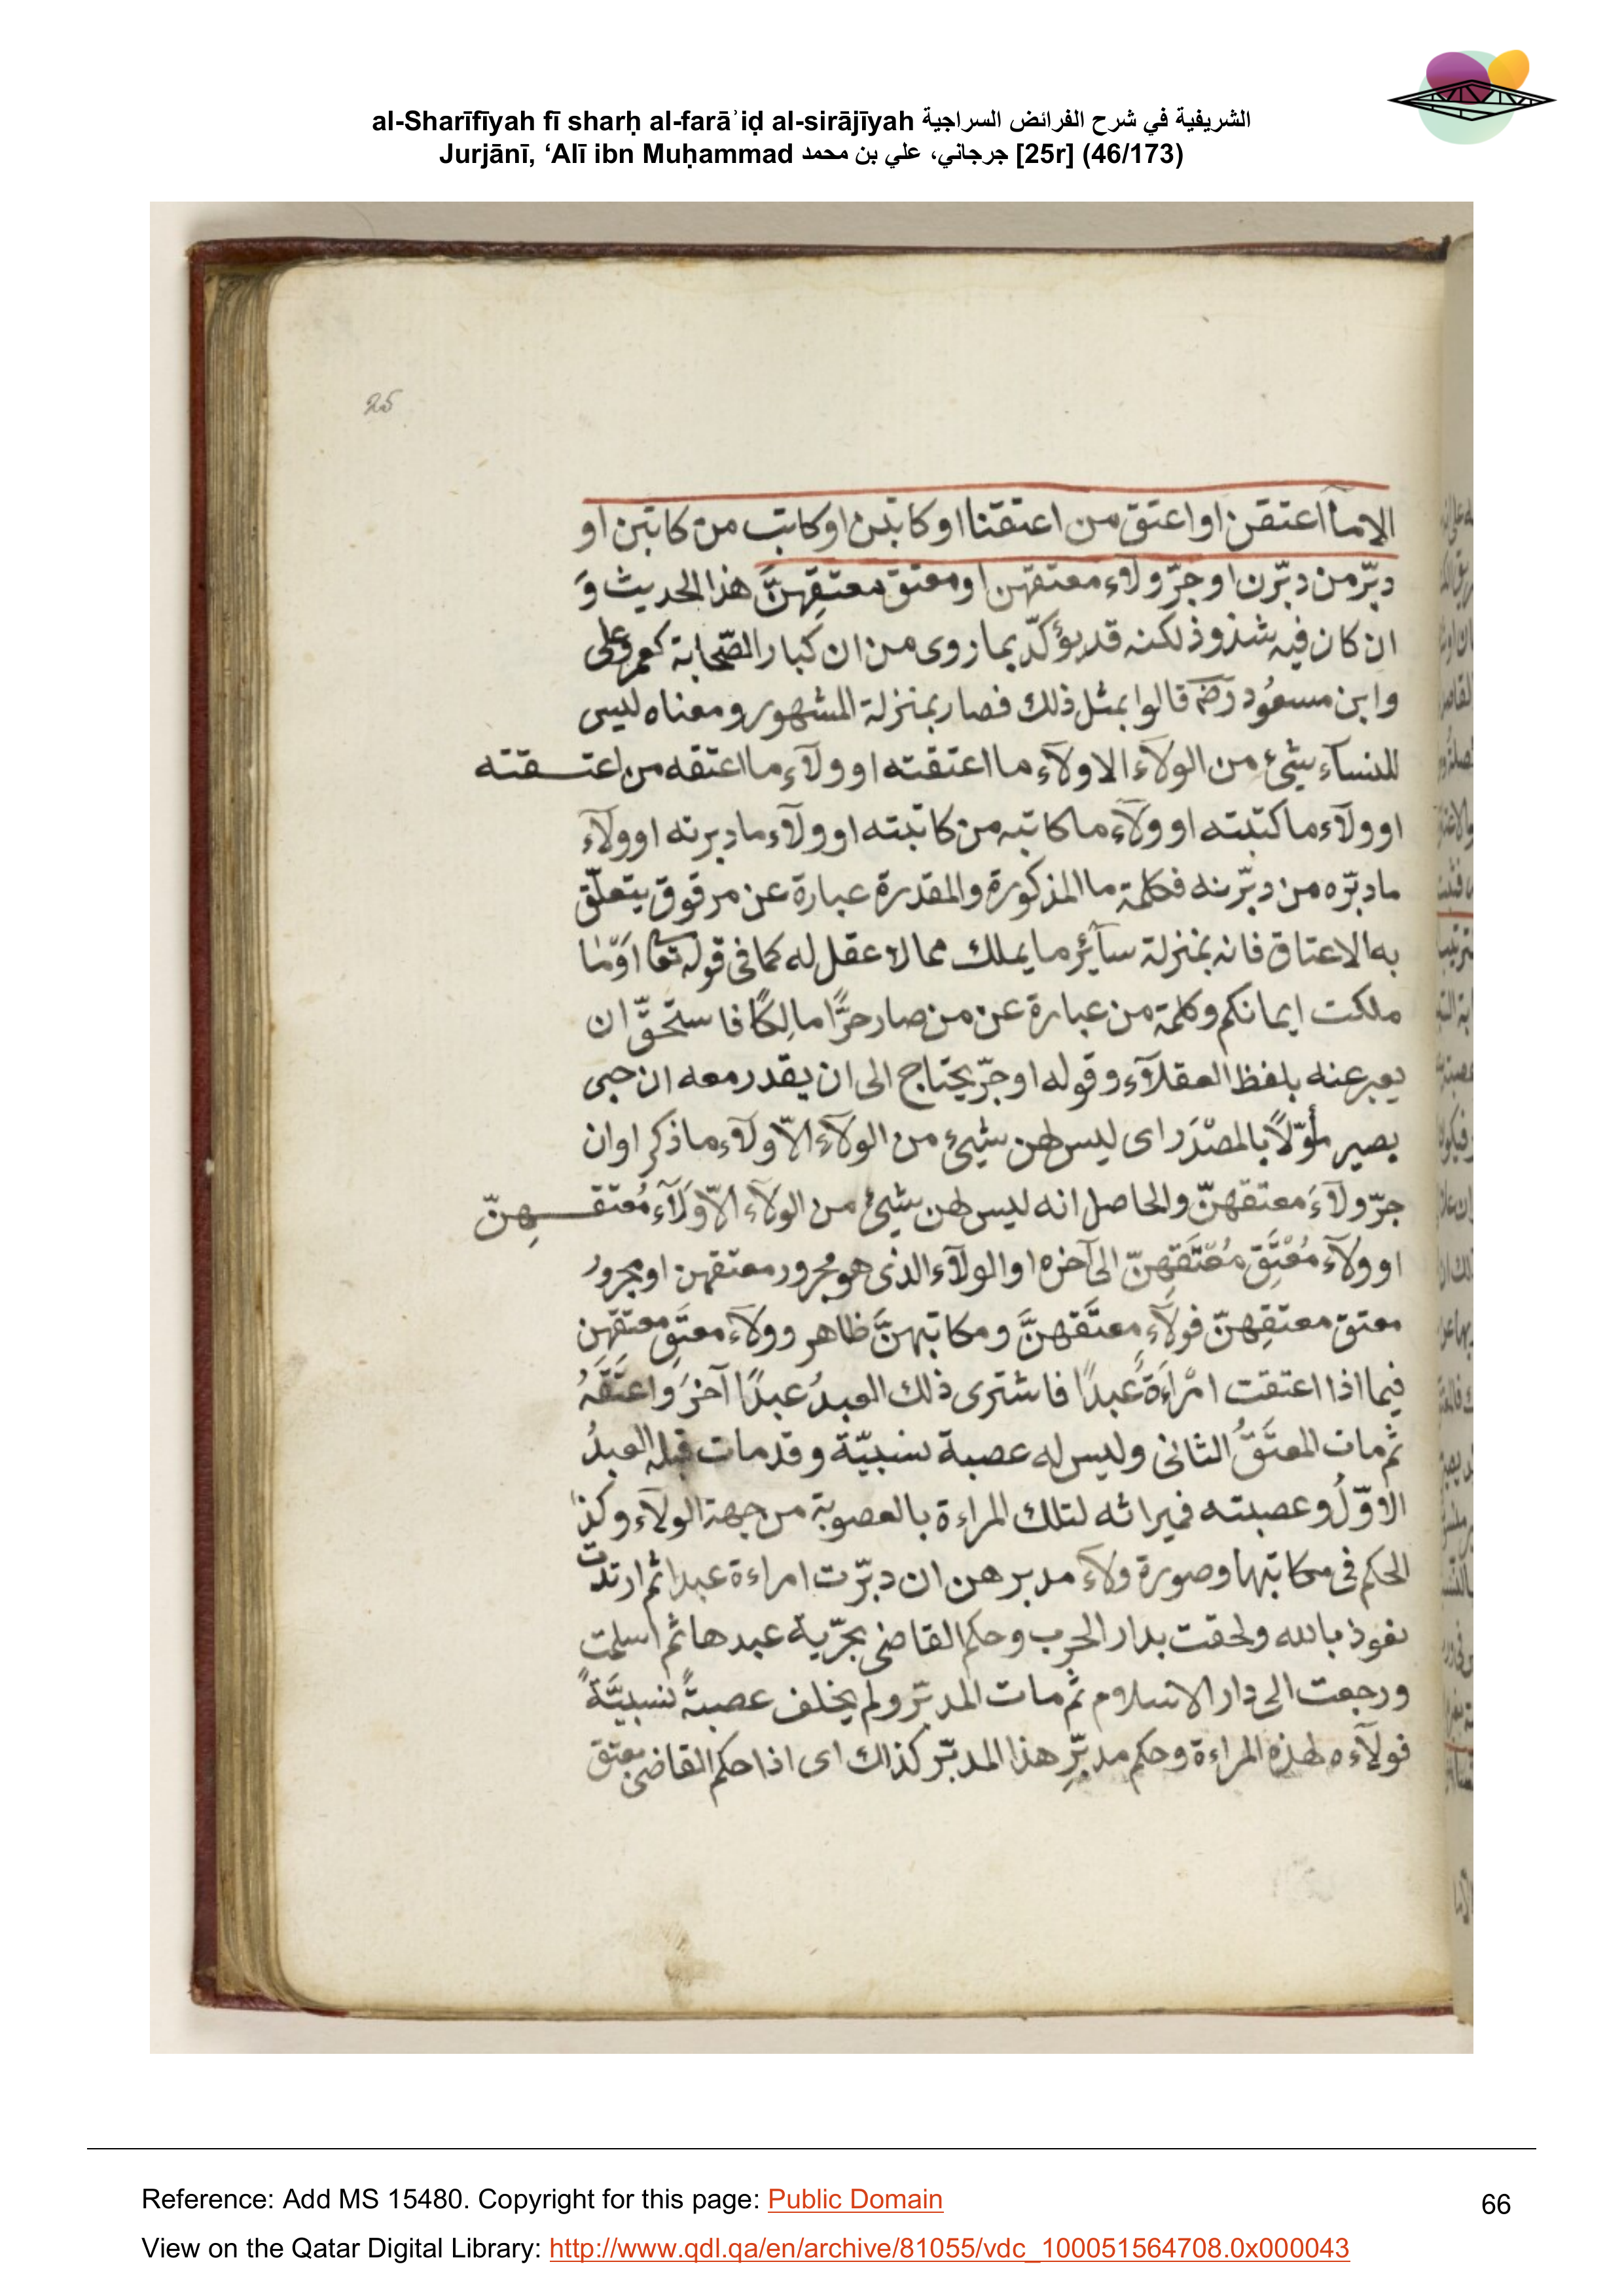 al-Sharīfīyah fī sharḥ al-farāʾiḍ al-sirājīyah الشريفية في شرح الفرائض السراجية
Jurjānī, ‘Alī ibn Muḥammad جرجاني، علي بن محمد [25r] (46/173)
25
الا ما اعتقن او اعتق من اعتقنا او كاتبن او كاتب من كاتبن او
دبّر من دبّرن او جرّ ولاء معتقهن او معتق معتقِهنَّ هذا الحديث وَ
ان كان فيه شذوذ لكنه قد يؤكّد بما روى من ان كبار الصّحابة كعمر وعلى
وابن مسعُود رضَ قالوا بمثل ذلك فصار بمنزلة المشهور ومعناه ليس
للنسآء شئ من الولآء الا ولآء ما اعتقته او ولآء ما اعتقه من اعتقته
او ولآء ما كتبته او ولآء ما كاتبه من كاتبته او ولآء ما دبرته او ولآء
ما دبّره من دبّرنه فكلمة ما المذكورة والمقدرة عبارة عن مرقوق يتعلّق
به الاعتاق فانه بمنزلة سآئر ما يملك مما لا عقل له كما فى قوله تعا اوّما
ملكت ايمانكم وكلمة من عبارة عن من صار حرًّا مالِكًا فاستحقّ ان
يعبر عنه بلفظ العقلآء وقوله او جرّ يحتاج الى ان يقدر معه ان حبى
يصير مأوّلاً بالمصْدَر اى ليس لهن شئ من الولآء الاّ ولآء ما ذكر او ان
جرّ ولآءَ معتقهنّ والحاصل انه ليس لهن شئ من الولآء الاّ ولآء مُعتقهِنّ
او ولآء مُعْتَقِ مُعْتَقِهِنّ الى آخره او الولآء الذى هو مجرور معتقهن او مجرور
معتق معتقِهنّ فولآء معتَقهنَّ ومكاتبهنَّ ظاهر وولآء معتَقِ معتقِهِن
فيما اذا اعتقت امْراَةٌ عَبدًا فاشترى ذلك العبدُ عبدًا آخرَ واعتَقَهُ
ثم مات المعتَقُ الثانى وليس له عصبة نسبيّة وقد مات قبله العبدُ
الاوّلُ وعصبته فميراثه لتلك المراءة بالعصوبة من جهة الولآء وكذا
الحكم فى مكاتبها وصورة ولآء مدبرهن ان دبّرت امراءة عبدا ثم ارتدت
نعوذ بالله ولحقت بدار الحرب وحكم القاضى بحرّية عبدها ثم اسلمت
ورجعت الى دار الاسلام ثم مات المدبّر ولم يخلف عصبةً نسبيَّةً
فولآءه لهذه المراءة وحكم مدبّرِ هذا المدبّر كذاك اى اذا حكم القاضى بعتق
Reference: Add MS 15480. Copyright for this page: Public Domain
66
View on the Qatar Digital Library: http://www.qdl.qa/en/archive/81055/vdc_100051564708.0x000043